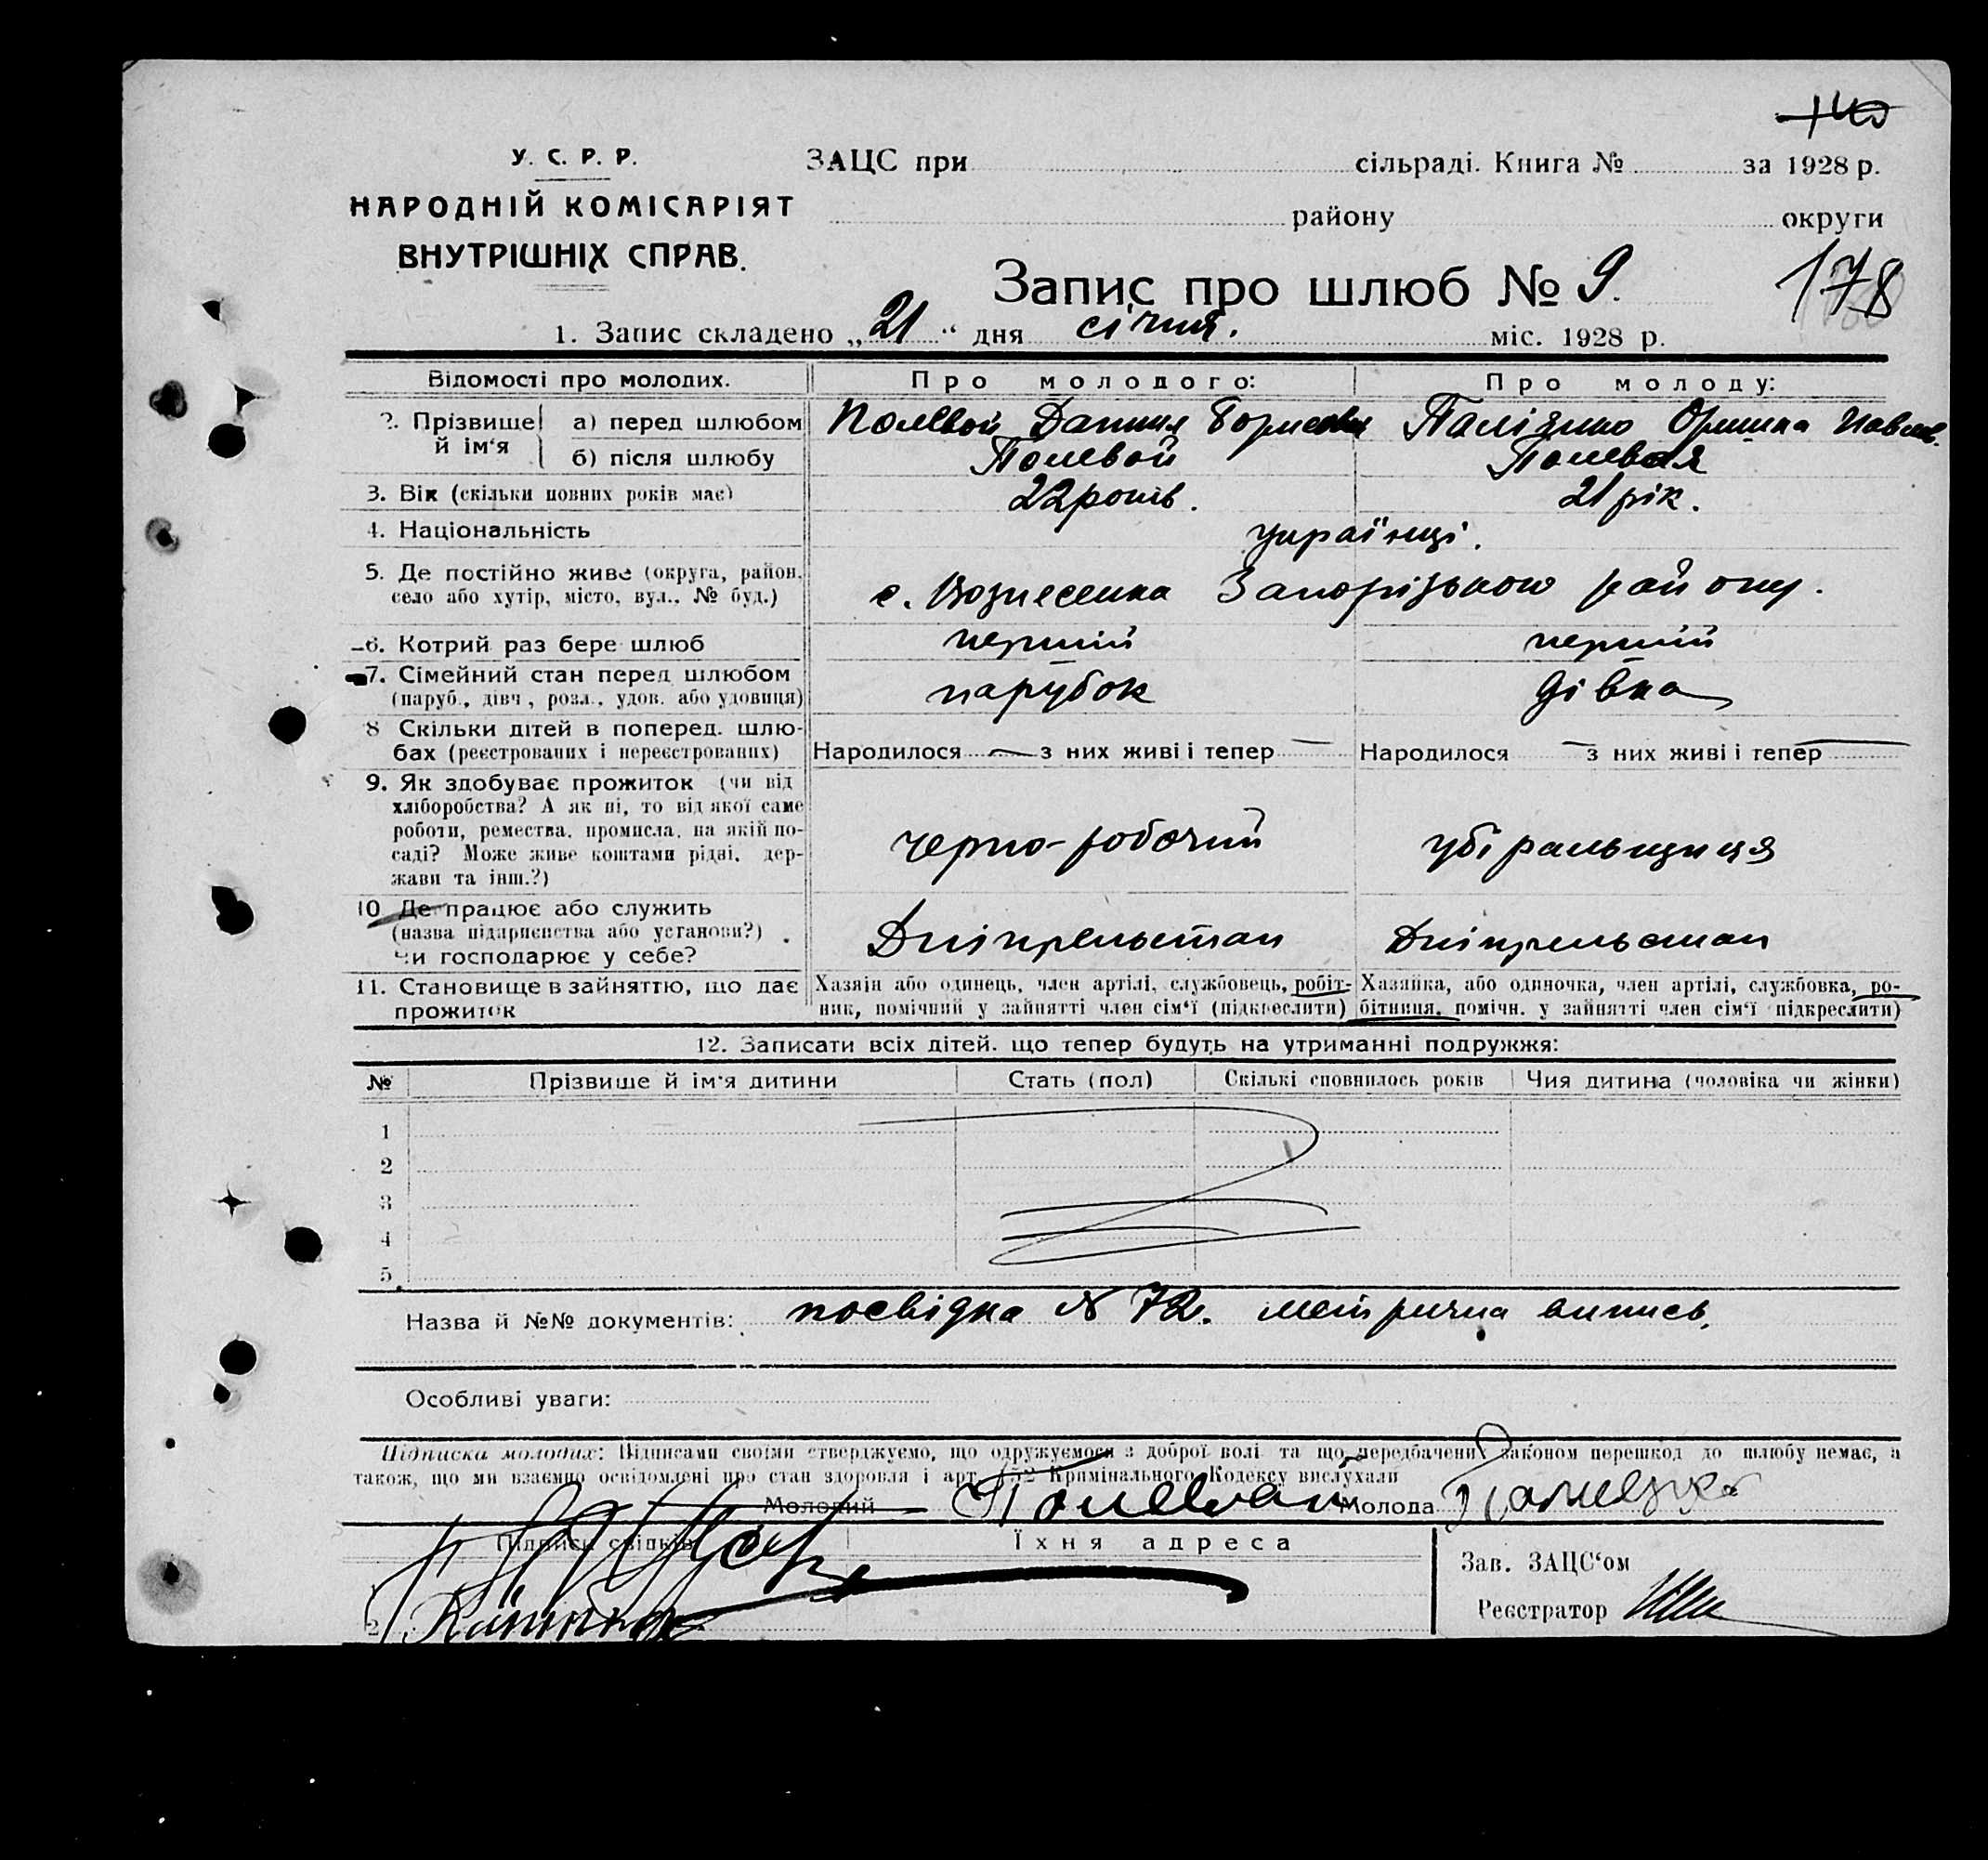 140
У. С. Р. Р.
НАРОДНІЙ КОМІСАРІЯТ
ВНУТРІШНІХ СПРАВ.
ЗАЦС при сільраді. Книга № за 1928 р.
району округи
Запис про шлюб № 9.
178
1. Запис складено „21“ дня січня. міс. 1928 р.
Відомості про молодих.
Про молодого:
Про молоду:
2. Прізвище й ім'я
а) перед шлюбом
Полевой Данил Борисович
Палізнко Оришка Павлов.
б) після шлюбу
Полевой
Полевая
3. Вік (скільки повних років має)
22 років.
21 рік.
4. Національність
українці.
5. Де постійно живе (округа, район,
село або хутір, місто, вул., № буд.)
с. Вознесенка Запорізького району.
6. Котрий раз бере шлюб
перший
перший
7. Сімейний стан перед шлюбом
(паруб., дівч., розл., удов. або удовиця)
парубок
дівка
8 Скільки дітей в поперед. шлю-
бах (реєстрованих і нереєстрованих)
Народилося — з них живі і тепер —
Народилося — з них живі і тепер —
9. Як здобуває прожиток (чи від
хліборобства? А як ні, то від якої саме
роботи, ремества, промисла, на якій по-
саді? Може живе коштами рідні, дер-
жави та інш.?)
черно-робочий
убіральщиця
10 Де працює або служить
(назва підприємства або установи?)
Чи господарює у себе?
Дніпрельстан
Дніпрельстан
11. Становище в зайняттю, що дає
прожиток
Хазяїн або одинець, член артілі, службовець, робіт-
ник, помічний у зайнятті член сім'ї (підкреслити)
Хазяйка, або одиночка, член артілі, службовка, ро-
бітниця, помічн. у зайнятті член сім'ї підкреслити)
12. Записати всіх дітей, що тепер будуть на утриманні подружжя:
№ Прізвище й ім'я дитини Стать (пол) Скількі сповнилось років Чия дитина (чоловіка чи жінки)
1
2
3
4
5.
Назва й №№ документів: посвідка № 72. метрична випись.
Особливі уваги:
Підписка молодих: Підписами своїми стверджуємо, що одружуємося з доброї волі та що передбачених законом перешкод до шлюбу немає, а
також, що ми взаємно освідомлені про стан здоровля і арт. 152 Кримінального Кодексу вислухали
Молодий Молода
Підписи свідків
Їхня адреса
Зав. ЗАЦС'ом
Реєстратор
2